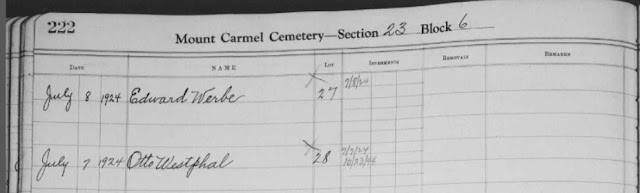 222
Mount Carmel Cemetery—Section 23 Block 6
DATE NAME LOT INTERMENTS REMOVALS REMARKS
July 8 1924 Edward Werbe 27 7/8/24
July 7 1924 Otto Westphal 28 7/7/24